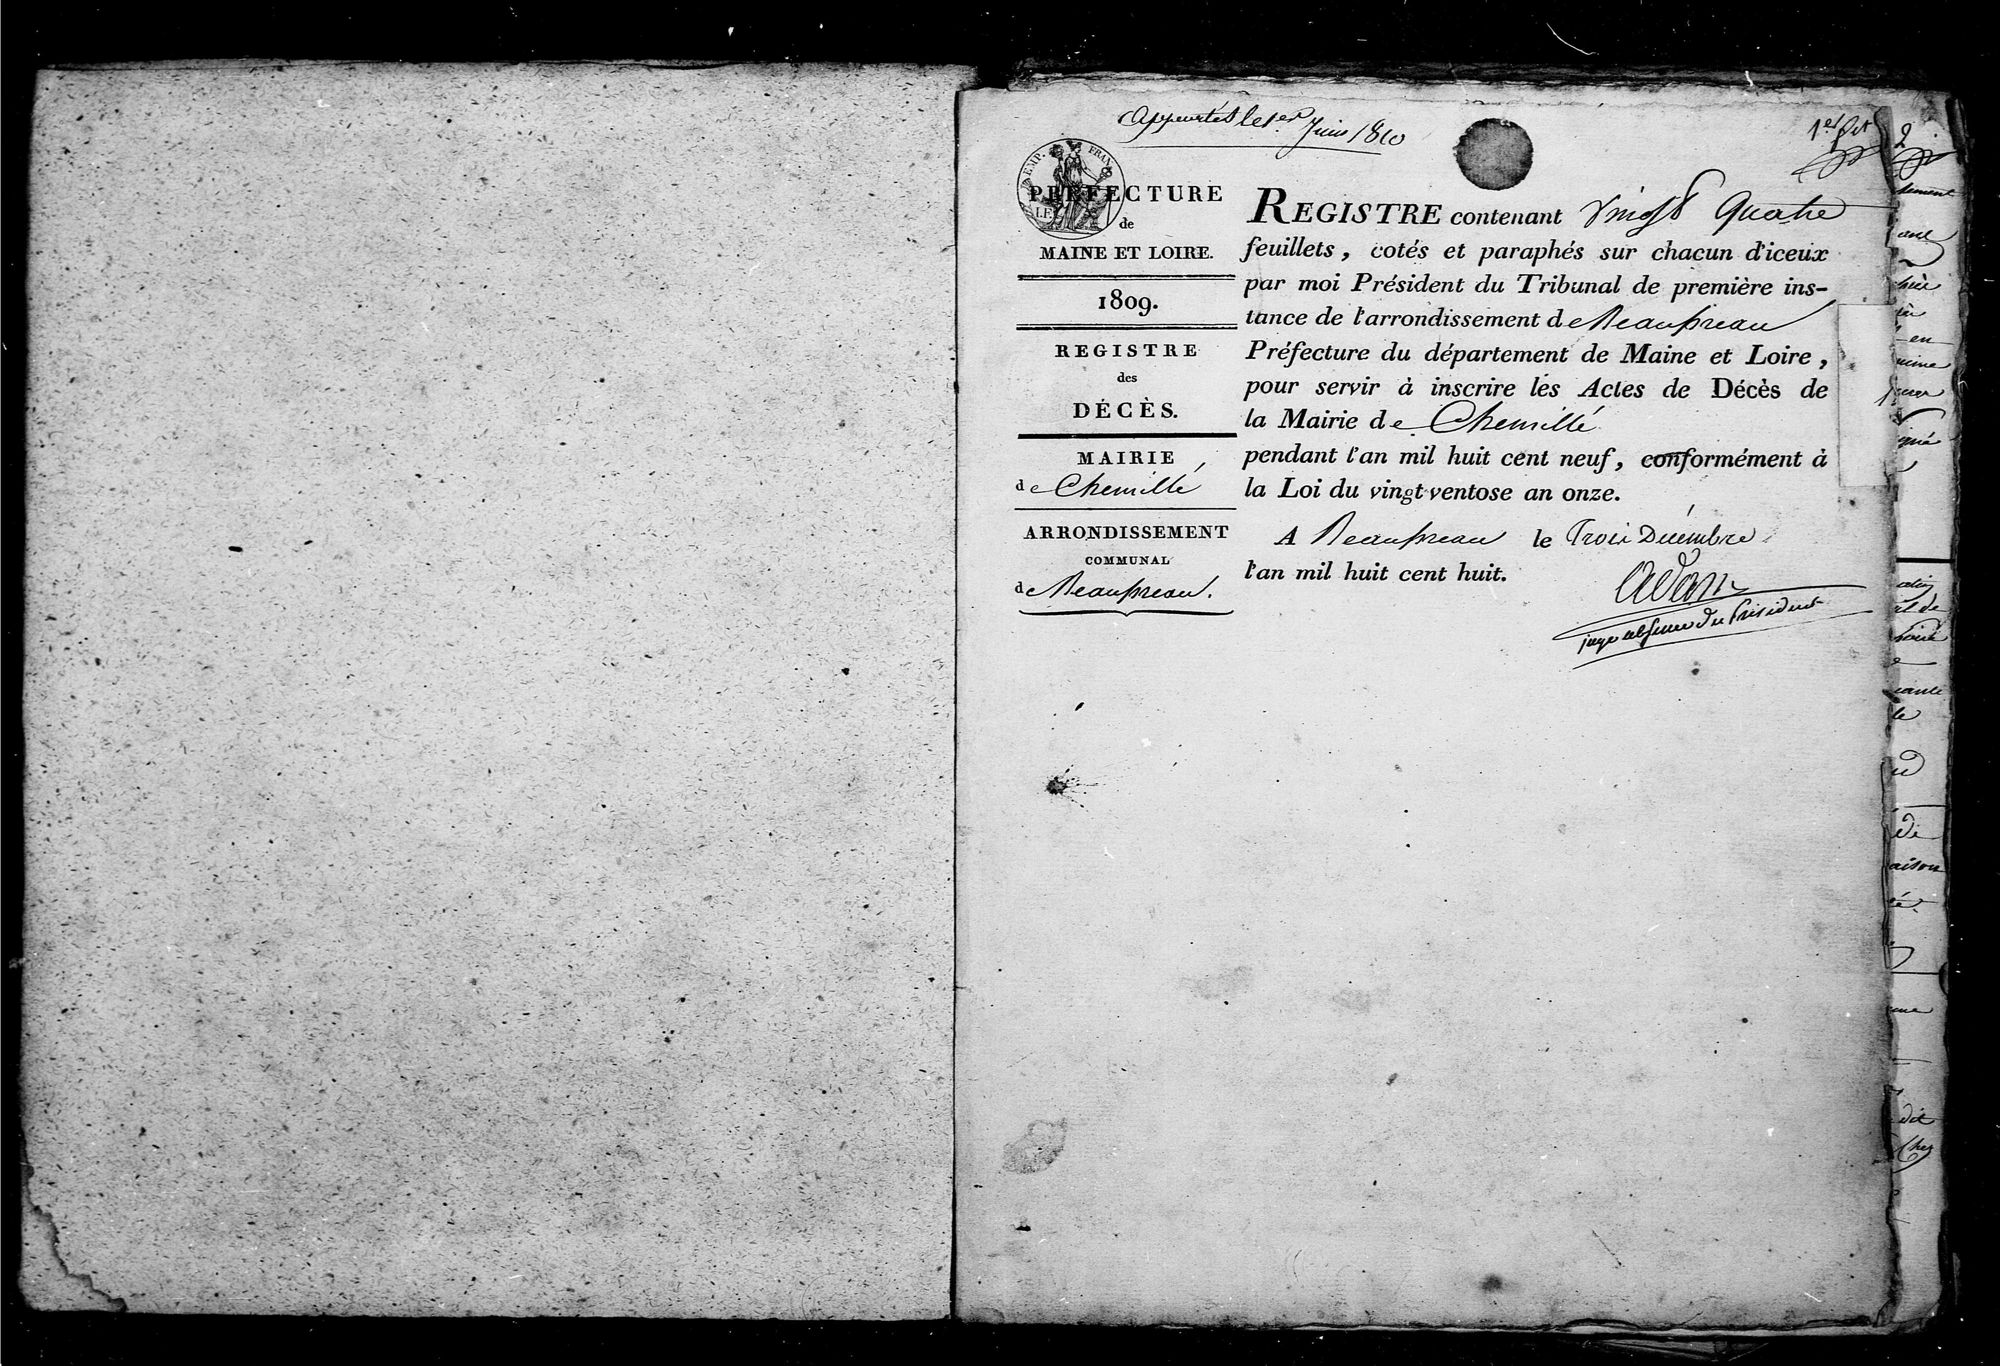 Apportés le 1er Juin 1810
1er fet
2.
EMP. FRAN.
PRÉFECTURE
de
MAINE ET LOIRE.
1809.
REGISTRE
des
DÉCÈS.
MAIRIE
de Chemillé
ARRONDISSEMENT
COMMUNAL
de Beaupreau.
REGISTRE contenant Vingt Quatre
feuillets, cotés et paraphés sur chacun d'iceux
par moi Président du Tribunal de première ins-
tance de l'arrondissement de Beaupreau
Préfecture du département de Maine et Loire,
pour servir à inscrire les Actes de Décès de
la Mairie de Chemillé
pendant l'an mil huit cent neuf, conformément à
la Loi du vingt ventose an onze.
A Beaupreau le Trois Décembre
l'an mil huit cent huit.
juge absence du Président
en
de
aison
dit
Chez